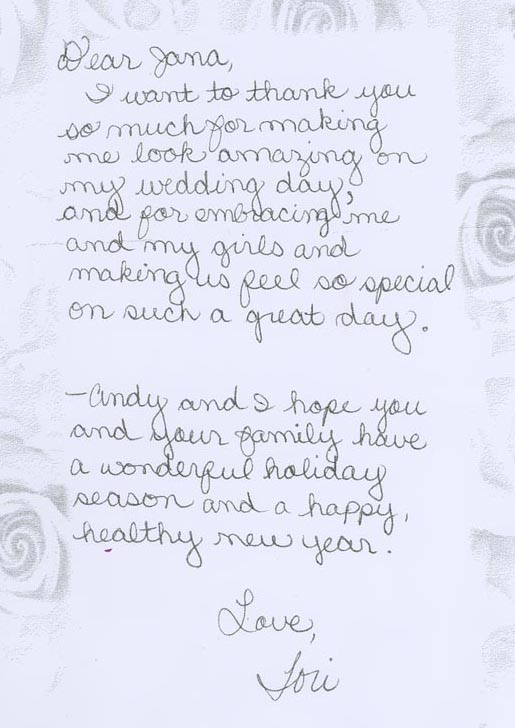 Dear Jana,
I want to thank you
so much for making
me look amazing on
my wedding day,
and for embracing me
and my girls and
making us feel so special
on such a great day.
-Andy and I hope you
and your family have
a wonderful holiday
season and a happy,
healthy new year.
Love,
Lori